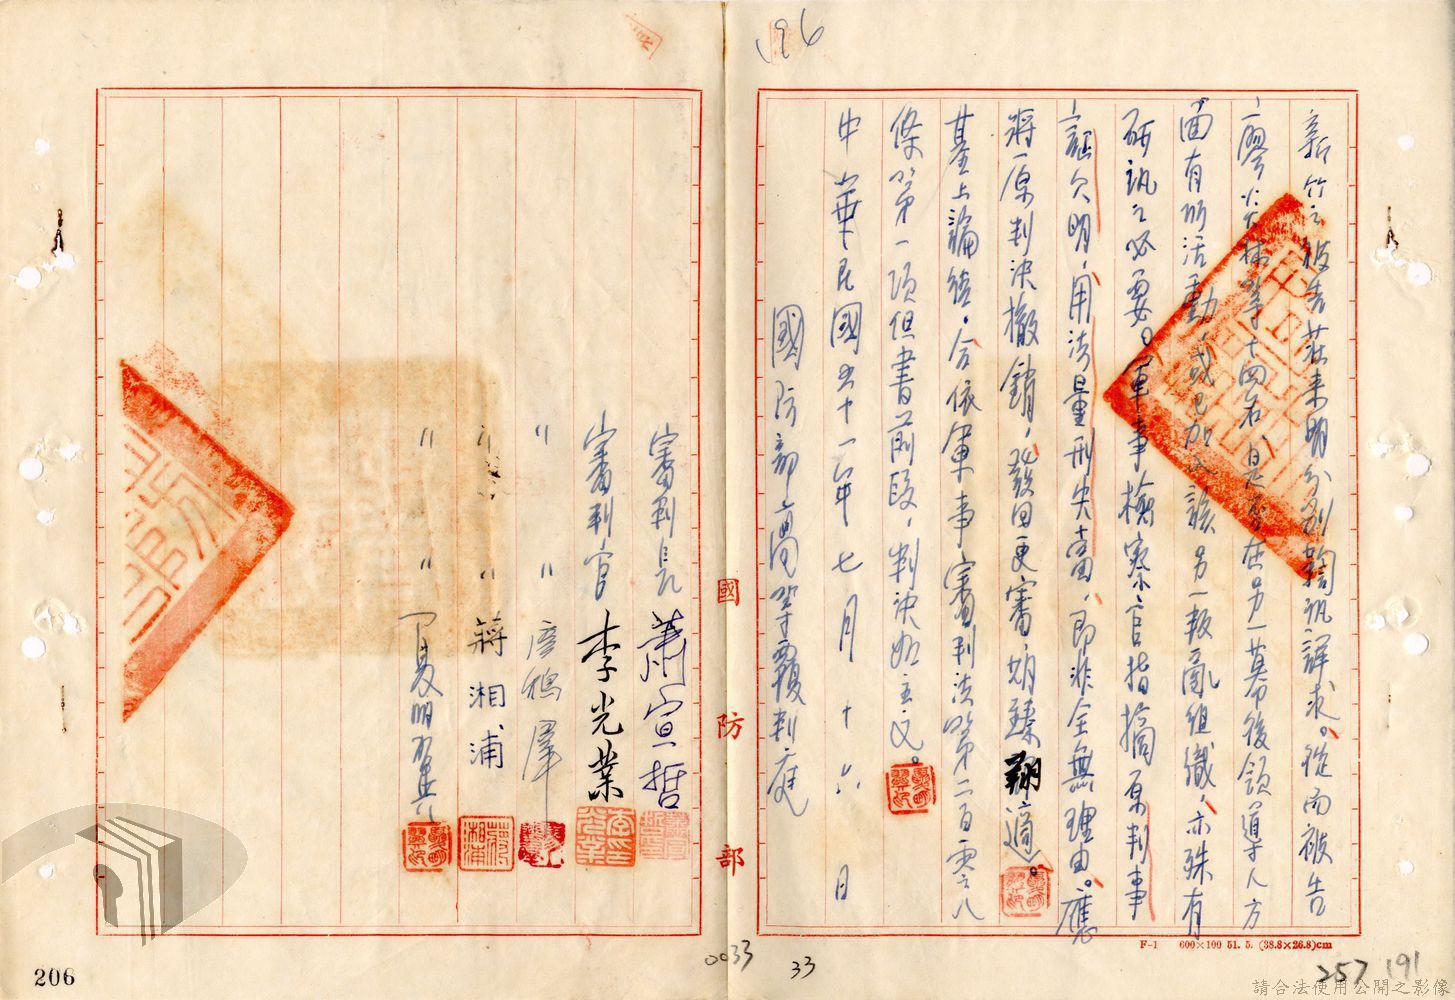 196
新竹之被告莊來明分別鞫訊詳求。從而被告
廖炎林等十四名，是否在另一幕後領導人方
面有所活動，或已加入該另一叛亂組織，亦殊有
研訊之必要。軍事檢察官指摘原判事
證欠明，用法量刑失當，即非全無理由。應
將原判決撤銷，發回更審，期臻翔適。
基上論結，合依軍事審判法第二百零八
條第一項但書前段，判決如主文。
中華民國五十一年七月十六日
國防部高等覆判庭
審判長 蕭宣哲
審判官 李光業
〃 〃 唐鴻
〃 〃 蔣湘浦
〃 〃 夏明翼
國防部
F-1 600×100 51. 5. (38.8×26.8)cm
206
0033
33
257
191
請合法使用公開之影像